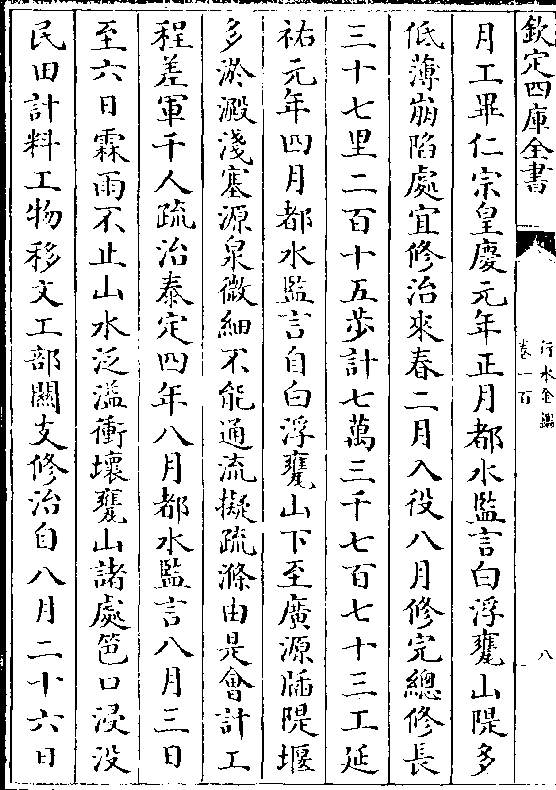 欽定四庫全書
行水金鑑
卷一百
八
月工畢仁宗皇慶元年正月都水監言白浮甕山隄多
低薄崩陷處宜修治來春二月入役八月修完總修長
三十七里二百十五步計七萬三千七百七十三工延
祐元年四月都水監言自白浮甕山下至廣源牐隄堰
多淤澱淺塞源泉微細不能通流擬疏滌由是會計工
程差軍千人疏治泰定四年八月都水監言八月三日
至六日霖雨不止山水泛溢衝壞甕山諸處笆口浸沒
民田計料工物移文工部關支修治自八月二十六日